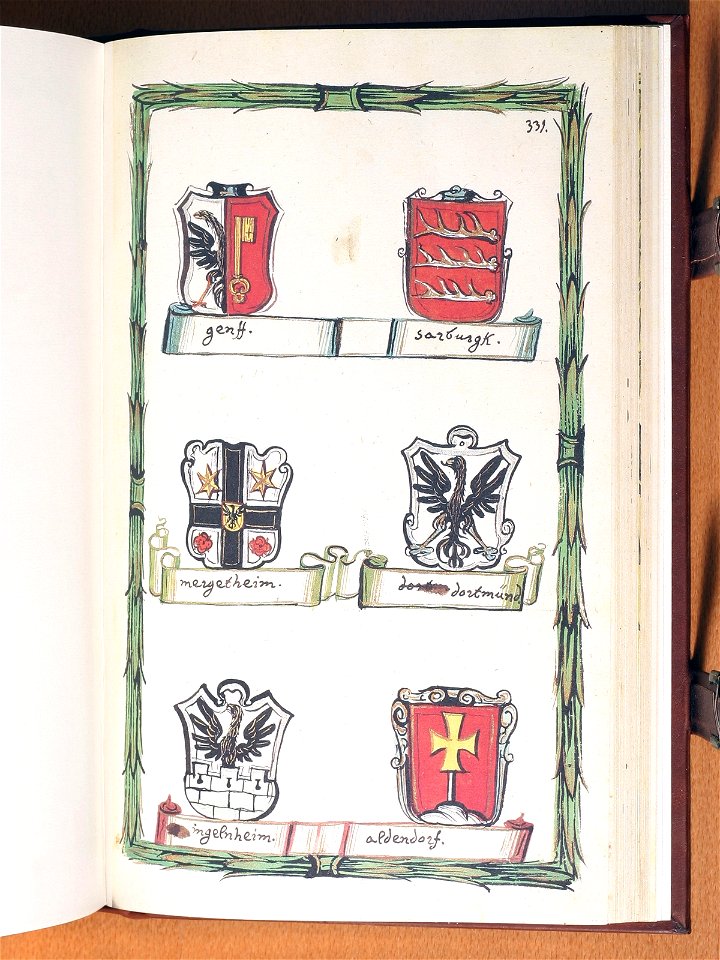 331.
genff.
sarburgk.
mergetheim.
dortmünd.
ingelnheim.
aldendorf.